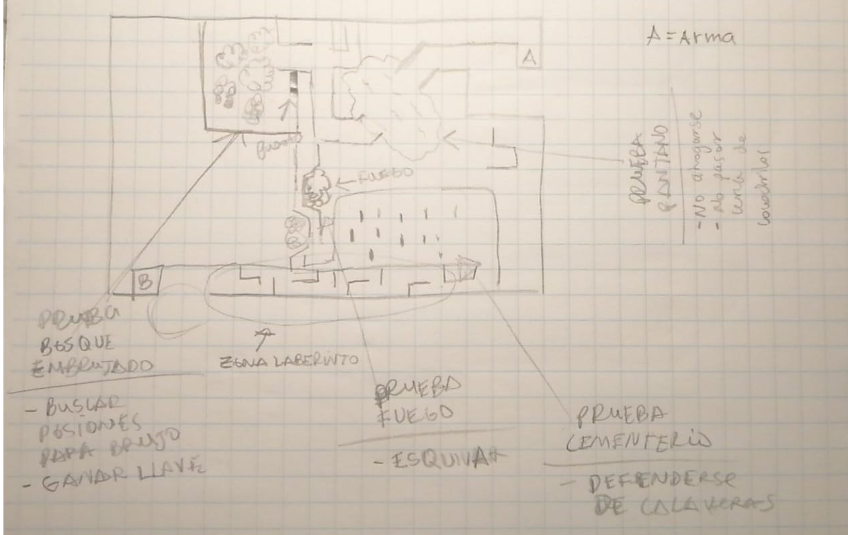 A = Arma
A
PRUEBA
PANTANO
- No ahogarse
- No pasar
cerca de
FUEGO
B
PRUEBA
BOSQUE
EMBRUJADO
- BUSCAR
POSIONES
PARA BRUJO
- GANAR LLAVE
ZONA LABERINTO
PRUEBA
FUEGO
- ESQUIVAR
PRUEBA
CEMENTERIO
- DEFENDERSE
DE CALAVERAS